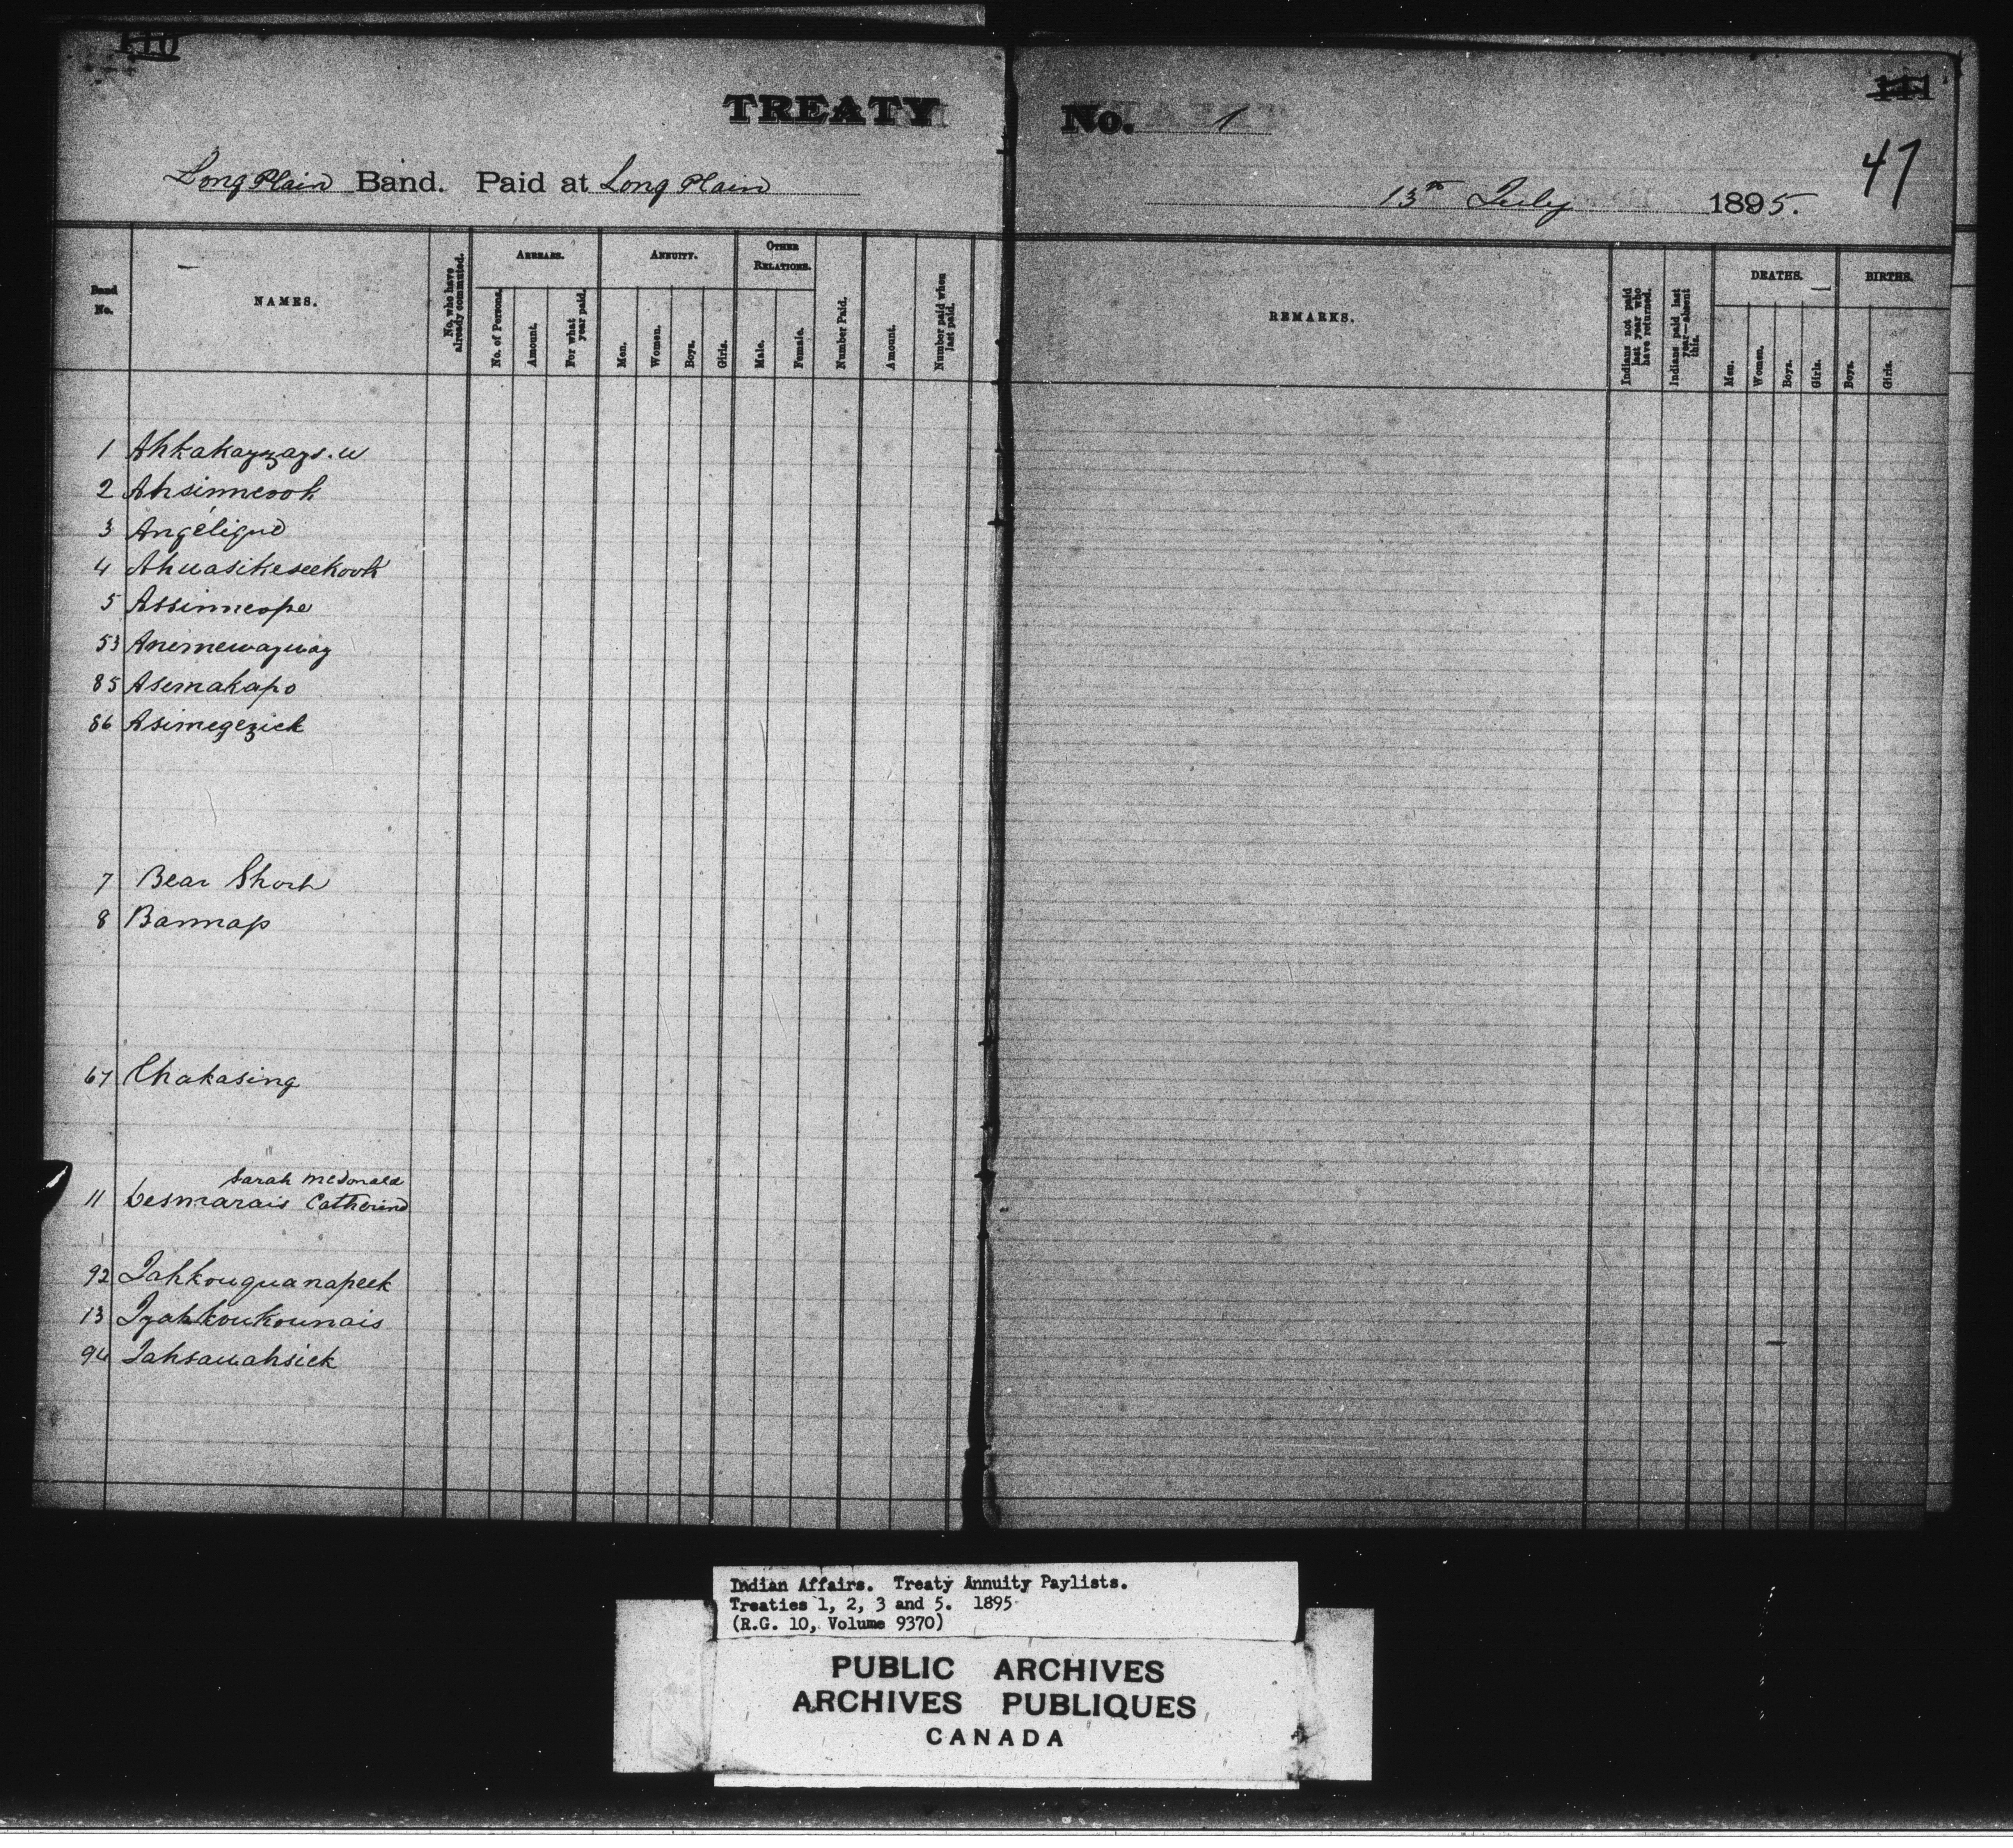 110
TREATY No. 1
111
47
Long Plain Band. Paid at Long Plain
13th July 1895.
Band No.
NAMES.
No. who have already commuted.
ARREARS.
No. of Persons.
Amount.
For what year paid.
ANNUITY.
Men.
Women.
Boys.
Girls.
OTHER RELATIONS.
Male.
Female.
Number Paid.
Amount.
Number paid when last paid.
REMARKS.
Indians not paid last year who have returned.
Indians paid last year—absent this.
DEATHS.
Men.
Women.
Boys.
Girls.
BIRTHS.
Boys.
Girls.
1 Ahkakayzays.w
2 Ahsinneook
3 Angélique
4 Ahuasikeseekook
5 Assinneope
53 Animewayway
85 Asemakapo
86 Asimegezick
7 Bear Short
8 Bannap
67 Chakasing
Sarah McDonald
11 Desmarais Catherine
92 Iahkouquanapeek
13 Iyahkoukounais
94 Iahsauahsick
Indian Affairs. Treaty Annuity Paylists.
Treaties 1, 2, 3 and 5. 1895
(R.G. 10, Volume 9370)
PUBLIC ARCHIVES
ARCHIVES PUBLIQUES
CANADA